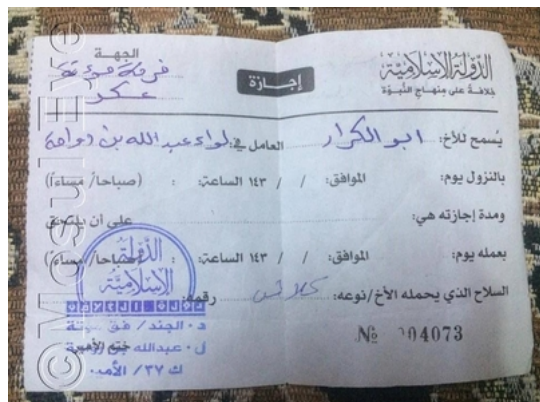 الدولة الإسلامية
خلافة على منهاج النبوة
إجازة
الجهة
عسكر
يُسمح للأخ: ابو الكرار العامل في: لواء عبدالله بن رواحة
بالنزول يوم: الموافق: / / ١٤٣ الساعة: : (صباحاً/ مساءً)
ومدة إجازته هي: على أن يلتحق
بعمله يوم: الموافق: / / ١٤٣ الساعة: : (صباحاً/ مساءً)
السلاح الذي يحمله الأخ/نوعه: كلاشن رقمه:
الدولة
الإسلامية
ختم الأمير
د. الجند/
ل. عبدالله بن رواحة
ك ٣٧/ الأمد
№ 04073